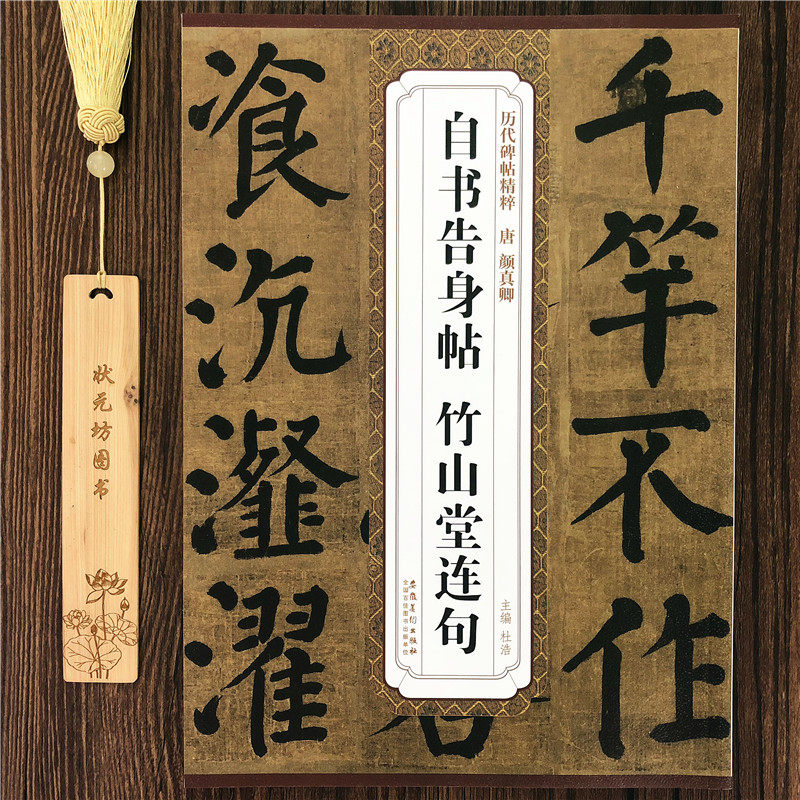 千竿不作
历代碑帖精粹 唐 颜真卿
自书告身帖 竹山堂连句
主编 杜浩
安徽美术出版社
全国百佳图书出版单位
飡沆瀣濯
状元坊图书